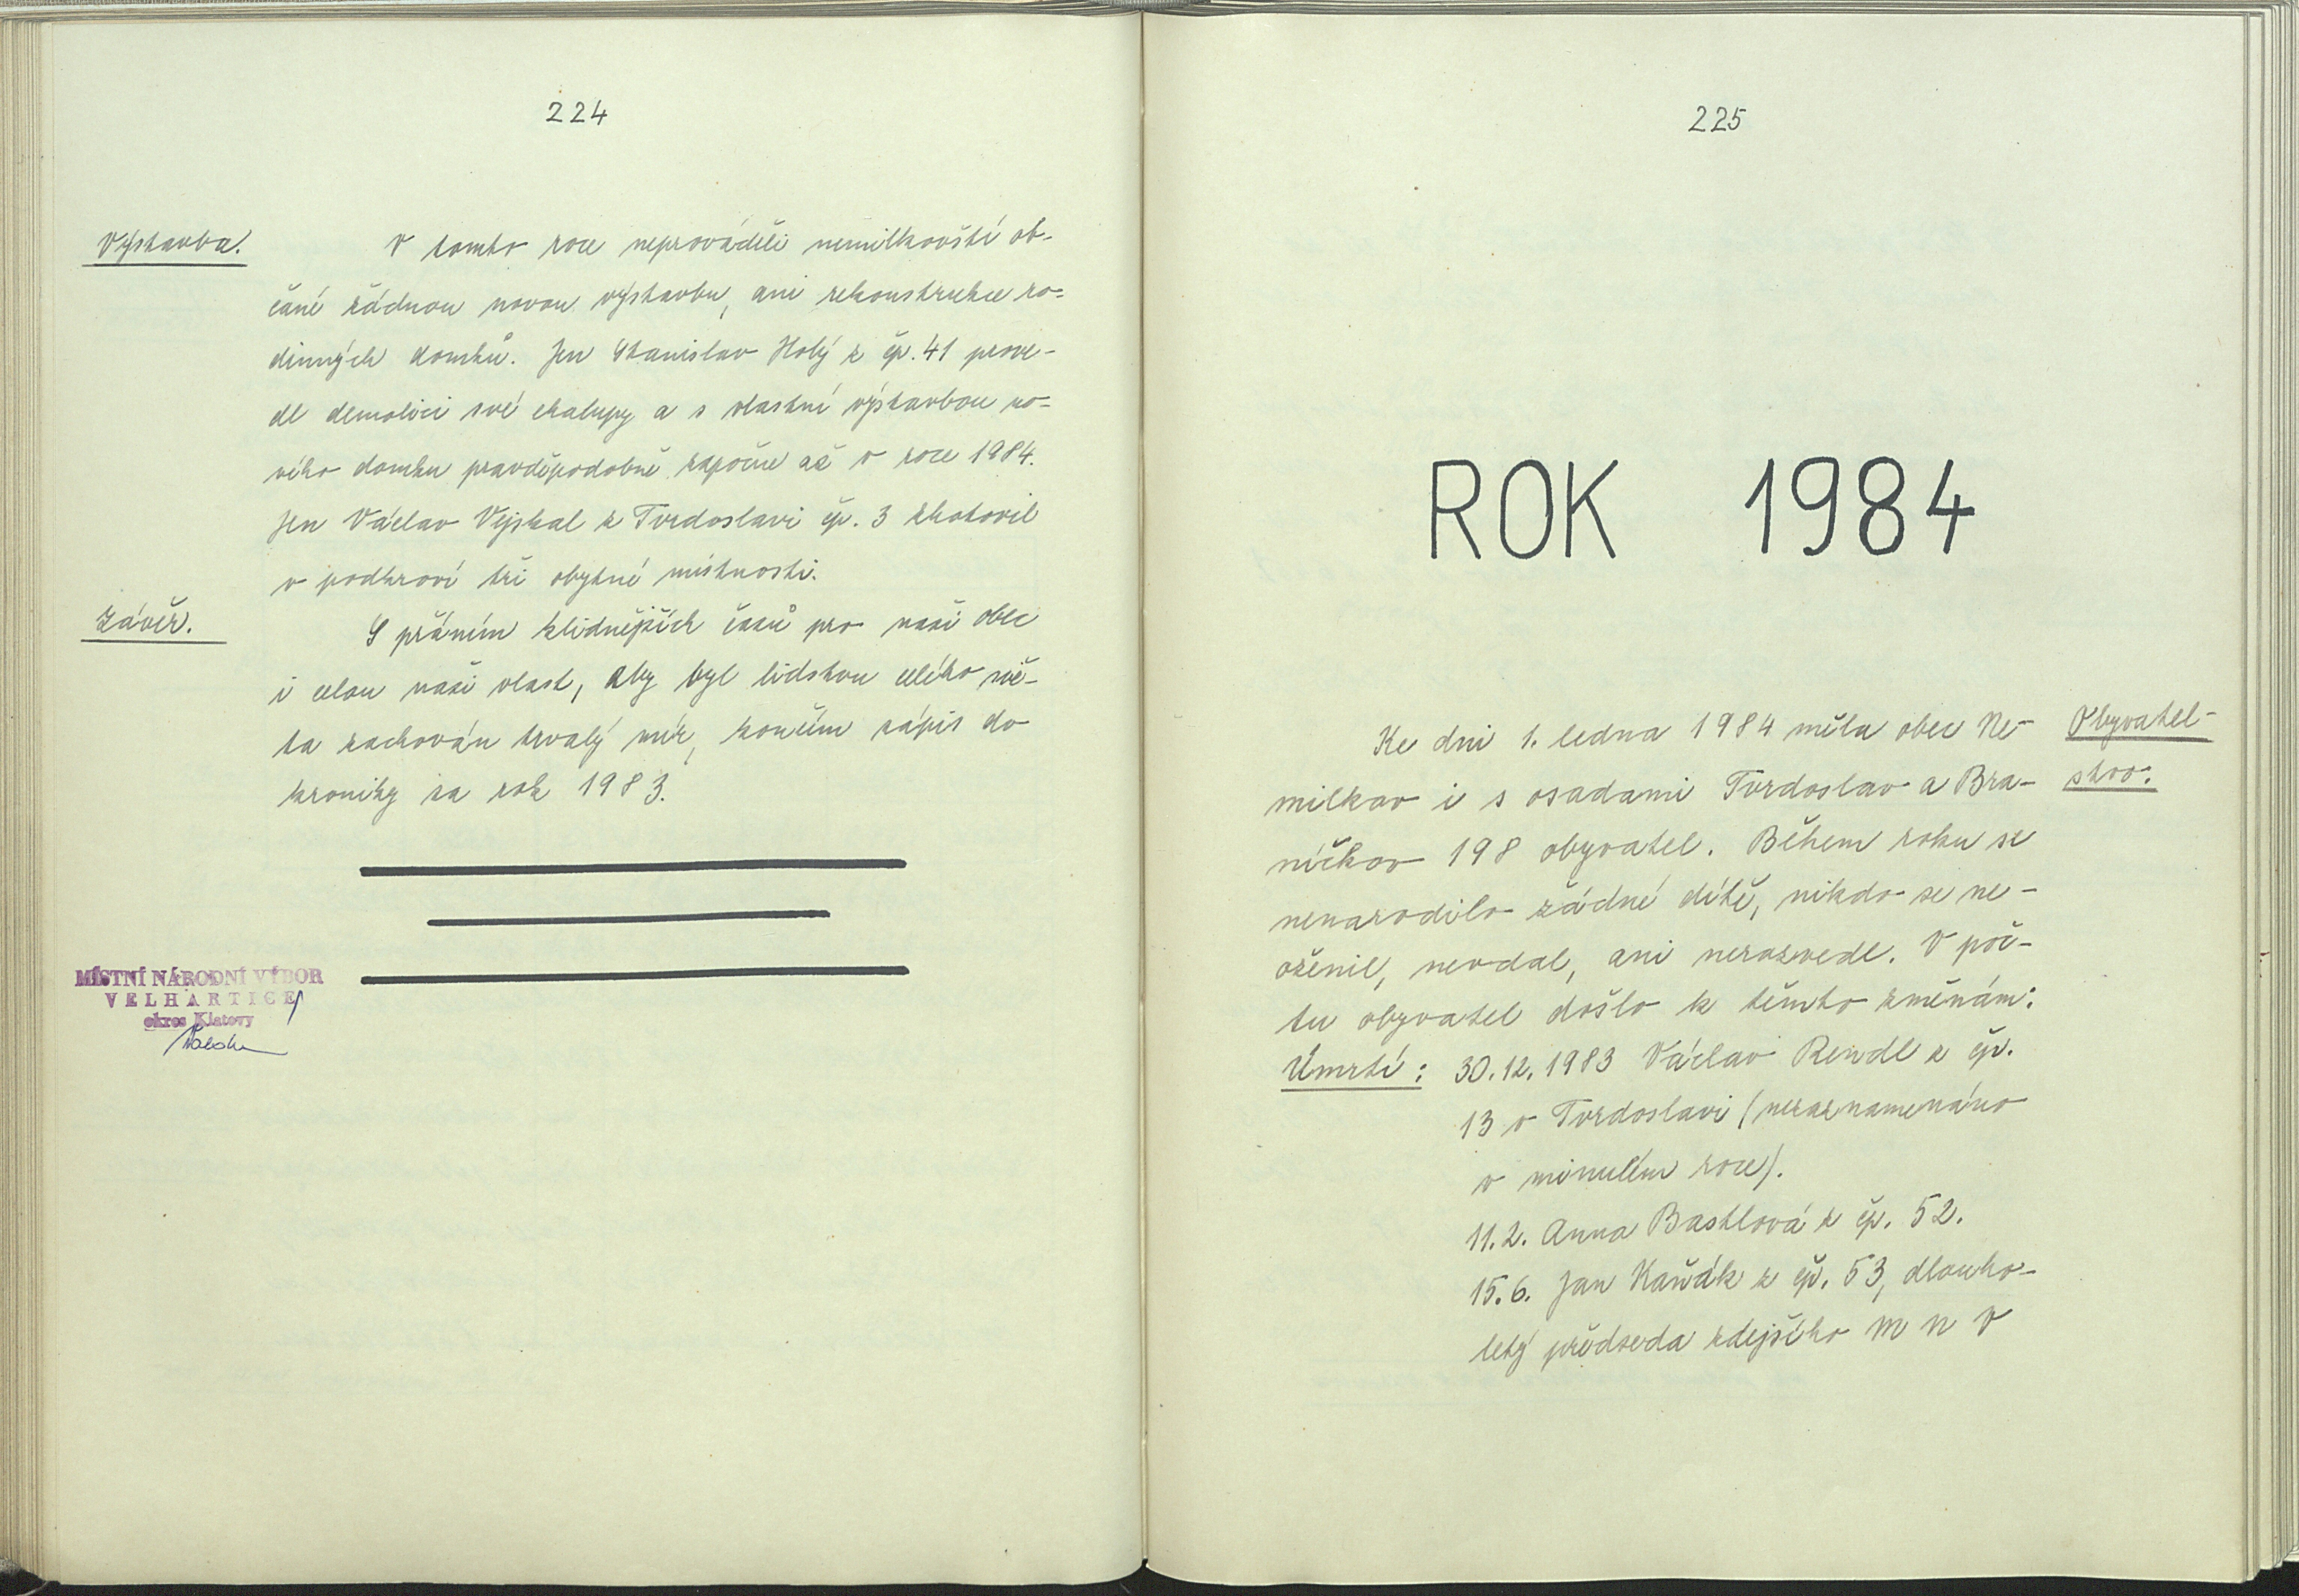 224
Výstavba.
V tomto roce neprováděli nemilkovští ob-
čané žádnou novou výstavbu, ani rekonstrukce ro-
dinných domků. Jen Stanislav Holý z čp. 41 prove-
dl demolici své chalupy a s vlastní výstavbou no-
vého domku pravděpodobně započne až v roce 1984.
Jen Václav Vejskal z Tvrdoslavi čp. 3 zhotovil
v podkroví tři obytné místnosti.
Závěr.
S přáním klidnějších časů pro naši obec
i celou naši vlast, aby byl lidstvu celého svě-
ta zachován trvalý mír, končím zápis do
kroniky za rok 1983.
MÍSTNÍ NÁRODNÍ VÝBOR
VELHARTICE
okres Klatovy
225
ROK 1984
Obyvatel-
stvo.
Ke dni 1. ledna 1984 měla obec Ne-
milkov i s osadami Tvrdoslav a Bra-
níčkov 198 obyvatel. Během roku se
nenarodilo žádné dítě, nikdo se ne-
oženil, nevdal, ani nerozvedl. V poč-
tu obyvatel došlo k těmto změnám:
Úmrtí: 30.12.1983 Václav Rendl z čp.
13 v Tvrdoslavi (nezaznamenáno
v minulém roce).
11.2. Anna Bastlová z čp. 52.
15.6. Jan Kaňák z čp. 53, dlouho-
letý předseda zdejšího M N V